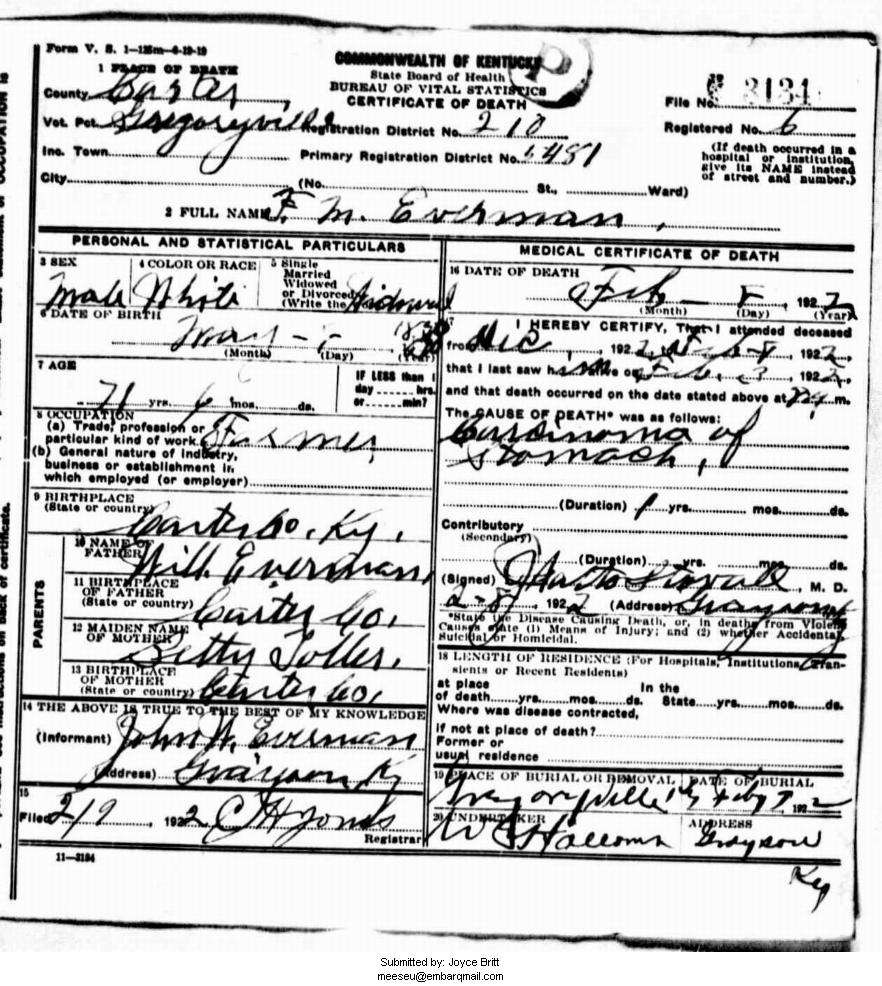 Form V. S. 1—125m—6-19-19
COMMONWEALTH OF KENTUCKY
State Board of Health
BUREAU OF VITAL STATISTICS
CERTIFICATE OF DEATH
1 PLACE OF DEATH
County Carter
Vot. Pct. Gregoryville
Registration District No. 210
File No. 3134
Registered No. 6
Inc. Town
Primary Registration District No. 5481
(If death occurred in a hospital or institution, give its NAME instead of street and number.)
City (No. St., Ward)
2 FULL NAME F. M. Everman,
PERSONAL AND STATISTICAL PARTICULARS
3 SEX Male
4 COLOR OR RACE White
5 Single Married Widowed or Divorced (Write the Widowed
6 DATE OF BIRTH
May
(Month) (Day) (Year)
7 AGE
71 yrs. 6 mos. ds.
IF LESS than 1 day hrs. or min?
8 OCCUPATION
(a) Trade, profession or particular kind of work Farmer
(b) General nature of industry, business or establishment in which employed (or employer)
9 BIRTHPLACE
(State or country) Carter Co. Ky.
PARENTS
10 NAME OF FATHER Will Everman,
11 BIRTHPLACE OF FATHER
(State or country) Carter Co,
12 MAIDEN NAME OF MOTHER Betty
13 BIRTHPLACE OF MOTHER
(State or country) Carter Co,
14 THE ABOVE IS TRUE TO THE BEST OF MY KNOWLEDGE
(Informant) John W. Everman
(Address) Grayson Ky
15
Filed 2/9, 1922 C H Jones
Registrar
11—3184
MEDICAL CERTIFICATE OF DEATH
16 DATE OF DEATH
Feb — 8, 1922
(Month) (Day) (Year)
17 I HEREBY CERTIFY, That I attended deceased
from Dec, 192 Feb 8 1922,
that I last saw him alive on Feb. 3 1922,
and that death occurred on the date stated above at m.
The CAUSE OF DEATH* was as follows:
Carcinoma of
Stomach,
(Duration) 1 yrs. mos. ds.
Contributory
(Secondary)
(Duration) yrs. mos. ds.
(Signed) Stovall, M. D.
2-8, 1922 (Address) Grayson Ky
*State the Disease Causing Death, or, in deaths from Violent Causes state (1) Means of Injury; and (2) whether Accidental, Suicidal or Homicidal.
18 LENGTH OF RESIDENCE (For Hospitals, Institutions, Transients or Recent Residents)
at place of death yrs. mos. ds. In the State yrs. mos. ds.
Where was disease contracted,
if not at place of death?
Former or usual residence
19 PLACE OF BURIAL OR REMOVAL Gregoryville
DATE OF BURIAL Feby 1922
20 UNDERTAKER
ADDRESS Grayson
Ky
Submitted by: Joyce Britt
meeseu@embarqmail.com